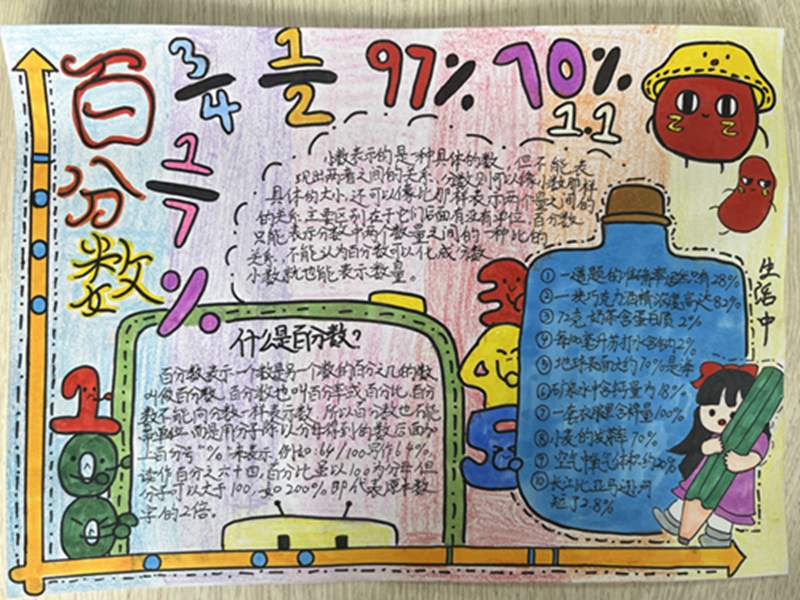 百分数
3/4
1/2
97%
70%
1.1
1/7
%
小数表示的是一种具体的数,但不能表
现出两者之间的关系,分数则可以像小数那样
具体的大小,还可以像比那样表示两个量之间的
的关系.主要区别在于它们后面有没有单位,百分数
只能表示分数中两个数量之间的一种比的
关系,不能认为百分数可以化成分数
小数就也能表示数量。
什么是百分数?
百分数表示一个数是另一个数的百分之几的数
叫做百分数,百分数也叫百分率或百分比,百分
数不能向分数一样表示数,所以百分数也不能
带单位,而是用分子除以分母得到的数后面加
上百分号"%"来表示,例如:64/100写作64%,
读作百分之六十四,百分比是以100为分母,但
分子可以大于100,如200%,即代表原本数
字的2倍。
100
345
生活中
① 一道题的准确率 只有28%
② 一块巧克力 浓度高达82%
③ 72克奶茶含蛋白质2%
④ 每 毫升苏打水含 2%
⑤ 地球表面大约70%是海
⑥ 矿泉水中含 量为18%
⑦ 一套衣服里含棉量100%
⑧ 小麦的发芽率70%
⑨ 空气中氧气体积约20%
⑩ 长江比亚马逊河
短了2.8%